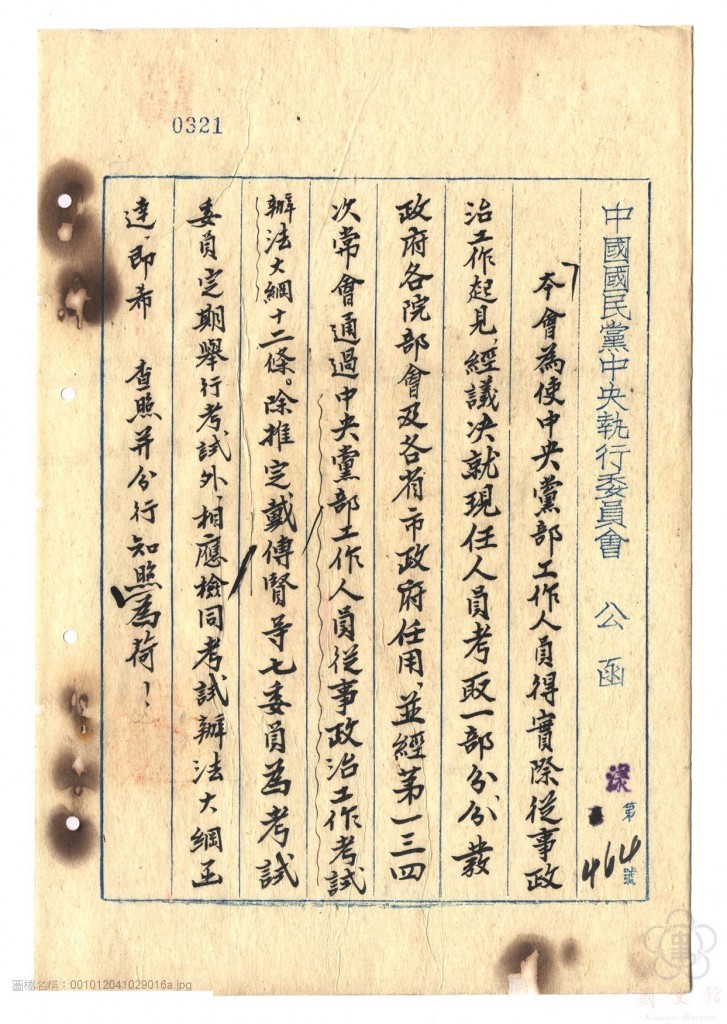 0321
中國國民黨中央執行委員會 公函
渝 第464號
本會為使中央黨部工作人員得實際從事政
治工作起見、經議决就現任人員考取一部分分發
政府各院部會及各省市政府任用、並經第一三四
次常會通過中央黨部工作人員從事政治工作考試
辦法大綱十二條。除推定戴傳賢等七委員為考試
委員定期舉行考試外、相應檢同考試辦法大綱函
達、即希 查照并分行知照為荷！
圖檔名稱：001012041029016a.jpg
國史館